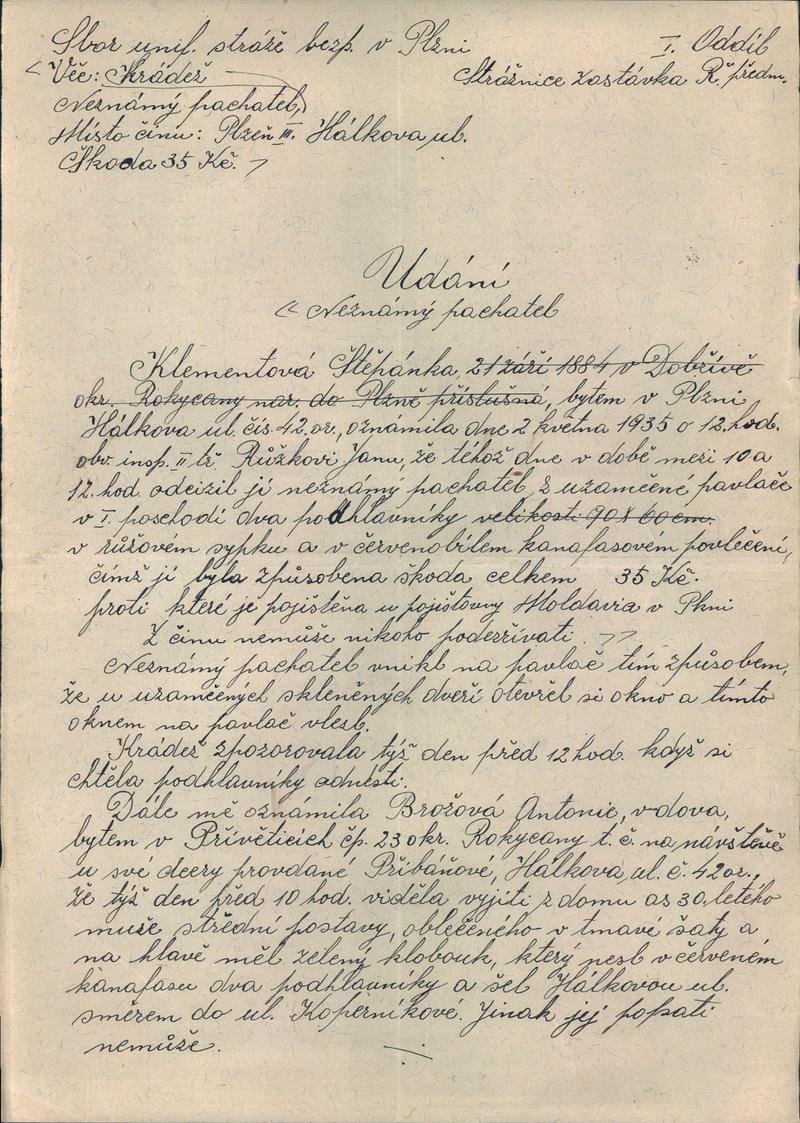 Sbor unif. stráže bezp. v Plzni I. Oddíl
Věc: Krádež Strážnice zastávka R. předm.
Neznámý pachatel,
Místo činu: Plzeň III. Hálkova ul.
Škoda 35 Kč.
Udání
Neznámý pachatel
Klementová Štěpánka, 21 září 1884 v Dobřívě
okr. Rokycany nar. do Plzně příslušná, bytem v Plzni
Hálkova ul. čís. 42. or., oznámila dne 2 května 1935 o 12. hod.
obv. insp. II tř. Růžkovi Janu, že téhož dne v době mezi 10 a
12. hod. odcizil jí neznámý pachatel z uzamčené pavlače
v I. poschodí dva podhlavníky velikosti 90 X 60 cm.
v růžovém sypku a v červenobílem kanafasovém povlečení,
čímž jí byla způsobena škoda celkem 35 Kč.
proti které je pojištěna u pojišťovny Moldavia v Plzni
Z činu nemůže nikoho podezřívati.
Neznámý pachatel vnikl na pavlač tím způsobem,
že u uzamčených skleněných dveří otevřel si okno a tímto
oknem na pavlač vlezl.
Krádež zpozorovala týž den před 12 hod. když si
chtěla podhlavníky odnésti.
Dále mě oznámila Brožová Antonie, vdova,
bytem v Přívěticích čp. 23 okr. Rokycany t. č. na návštěvě
u své dcery provdané Přibáňové, Hálkova ul. č. 42 or.,
že týž den před 10 hod. viděla vyjíti z domu as 30. letého
muže střední postavy, oblečeného v tmavé šaty a
na hlavě měl zelený klobouk, který nesl v červeném
kanafasu dva podhlavníky a šel Hálkovou ul.
směrem do ul. Koperníkové. Jinak jej popsati
nemůže.